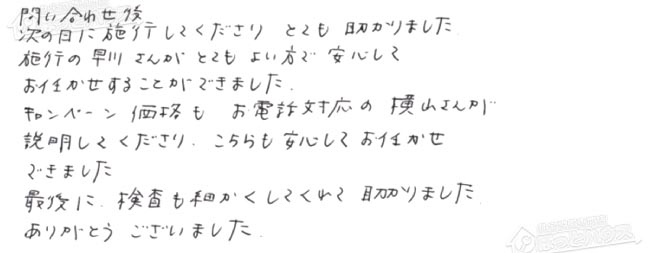 問い合わせ後
次の日に施行してくださり とても 助かりました
施行の 早川 さんが とても よい方で 安心して
お任かせすることができました.
キャンペーン 価格も お電話対応の 横山さんが
説明してくださり、こちらも安心してお任かせ
できました
最後に、検査も細かくしてくれて 助かりました.
ありがとう ございました.